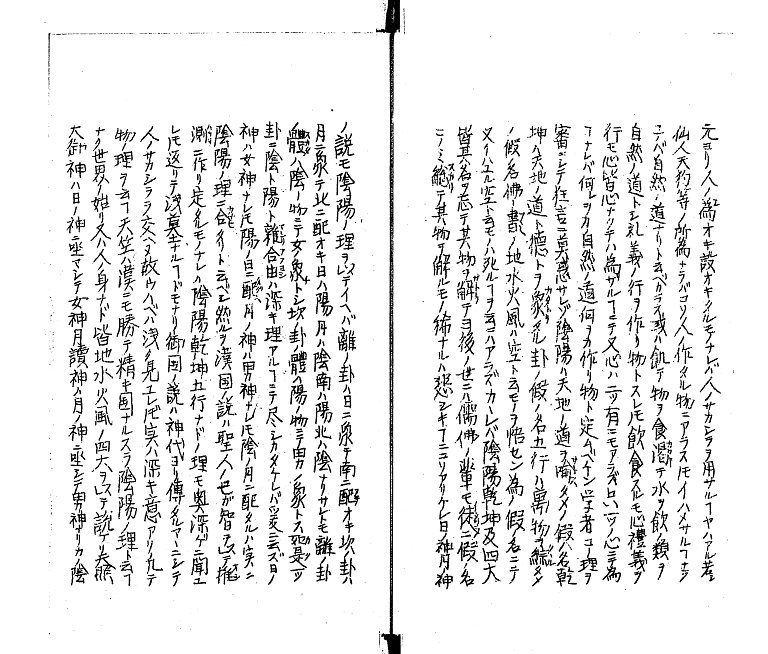 元ヨリ人ノ為オキ設オキタルモノナレバ人ノサカシラヲ用サルヿヤハアル若
仙人天狗等ノ所為ナラバコソ人ノ作タル物ニアラズモイハメサルヿナラ
子バ自然ノ道ナリト云ベカラズ或ハ飢テ物ヲ食渇テ水ヲ飲ノ類ヲ
自然ノ道トシ礼義ノ行ヲ作リ物トスレ𪜈飲食スルモ心禮義ヲ
行モ心皆心ナラデハ為ザルヿニテ又心ハ二ツ有ニモアラズ只一ツノ心ニテ為
ヿナレバ何レヲカ自然ノ道何ヲカ作リ物ト定ムベキ学者コノ理ヲ
審ニシテ狂言ニ莫惑サレソ陰陽ハ天地ノ道ヲ タメノ假ノ名乾
坤ハ天地ノ道ト德トヲ象タル卦ノ假ノ名五行ハ萬物ヲ綜タメ
ノ假名佛歟ノ地水火風ハ空ト云モノヲ悟セン為ノ假名ニテ
又イハユル空ト云モノハ死ルヿヲ云ニハアラズカヽレバ陰陽乾坤及四大
皆其名ヲ忘テ其物ヲ解テヨ後ノ世ニハ儒佛ノ輩モ徒ニ假ノ名
ニノミ縋テ其物ヲ解ルモノ稀ナルハ悲シキヿニコソアリケレ日ノ神月ノ神
ノ説モ陰陽ノ理ヲ以テイヘバ離ノ卦ハ日ニ象テ南ニ配オキ坎卦ハ
月ニ象テ北ニ配オキ日ハ陽月ハ陰南ハ陽北ハ陰ナリサレトモ離ノ卦
ノ體ハ陰ノ物ニテ女ノ象トシ坎卦ノ體ハ陽ノ物ニテ男ノ象トス但是一ツノ
卦ニ陰ト陽ト雜合由ハ深キ理アルヿニテ尽シカタケレバ爰ニ云ズ日ノ
神ハ女神ナレ𪜈陽ノ日ニ配月ノ神ハ男神ナレ𪜈陰ノ月ニ配タルハ実ニ
陰陽ノ理ニ合タリト云ベシ然ルヲ漢国ノ説ハ聖人𪜈ガ智ヲ以テ推
測ニ作リ定タルモノナレハ陰陽乾坤五行ナドノ理モ奥深ゲニ聞ユ
レ𪜈返リテ浅墓ナルヿドモナリ御国ノ説ハ神代ヨリ傳タルマヽニシテ
人ノサカシラヲ交ヘヌ故ウハベハ浅ク見ユレ𪜈実ハ深キ意アリ凡テ
物ノ理ヲ云フ天竺ハ漢ニモ勝テ精キ国ナルスラ陰陽ノ理ト云ヿ
ナク世界ノ始リ又ハ人ノ身ナド皆地水火風ノ四大ヲ以テ説ケリ天照
大御神ハ日ノ神ニ座マシテ女神月讀神ハ月ノ神ニ座シテ男神ナリカノ陰